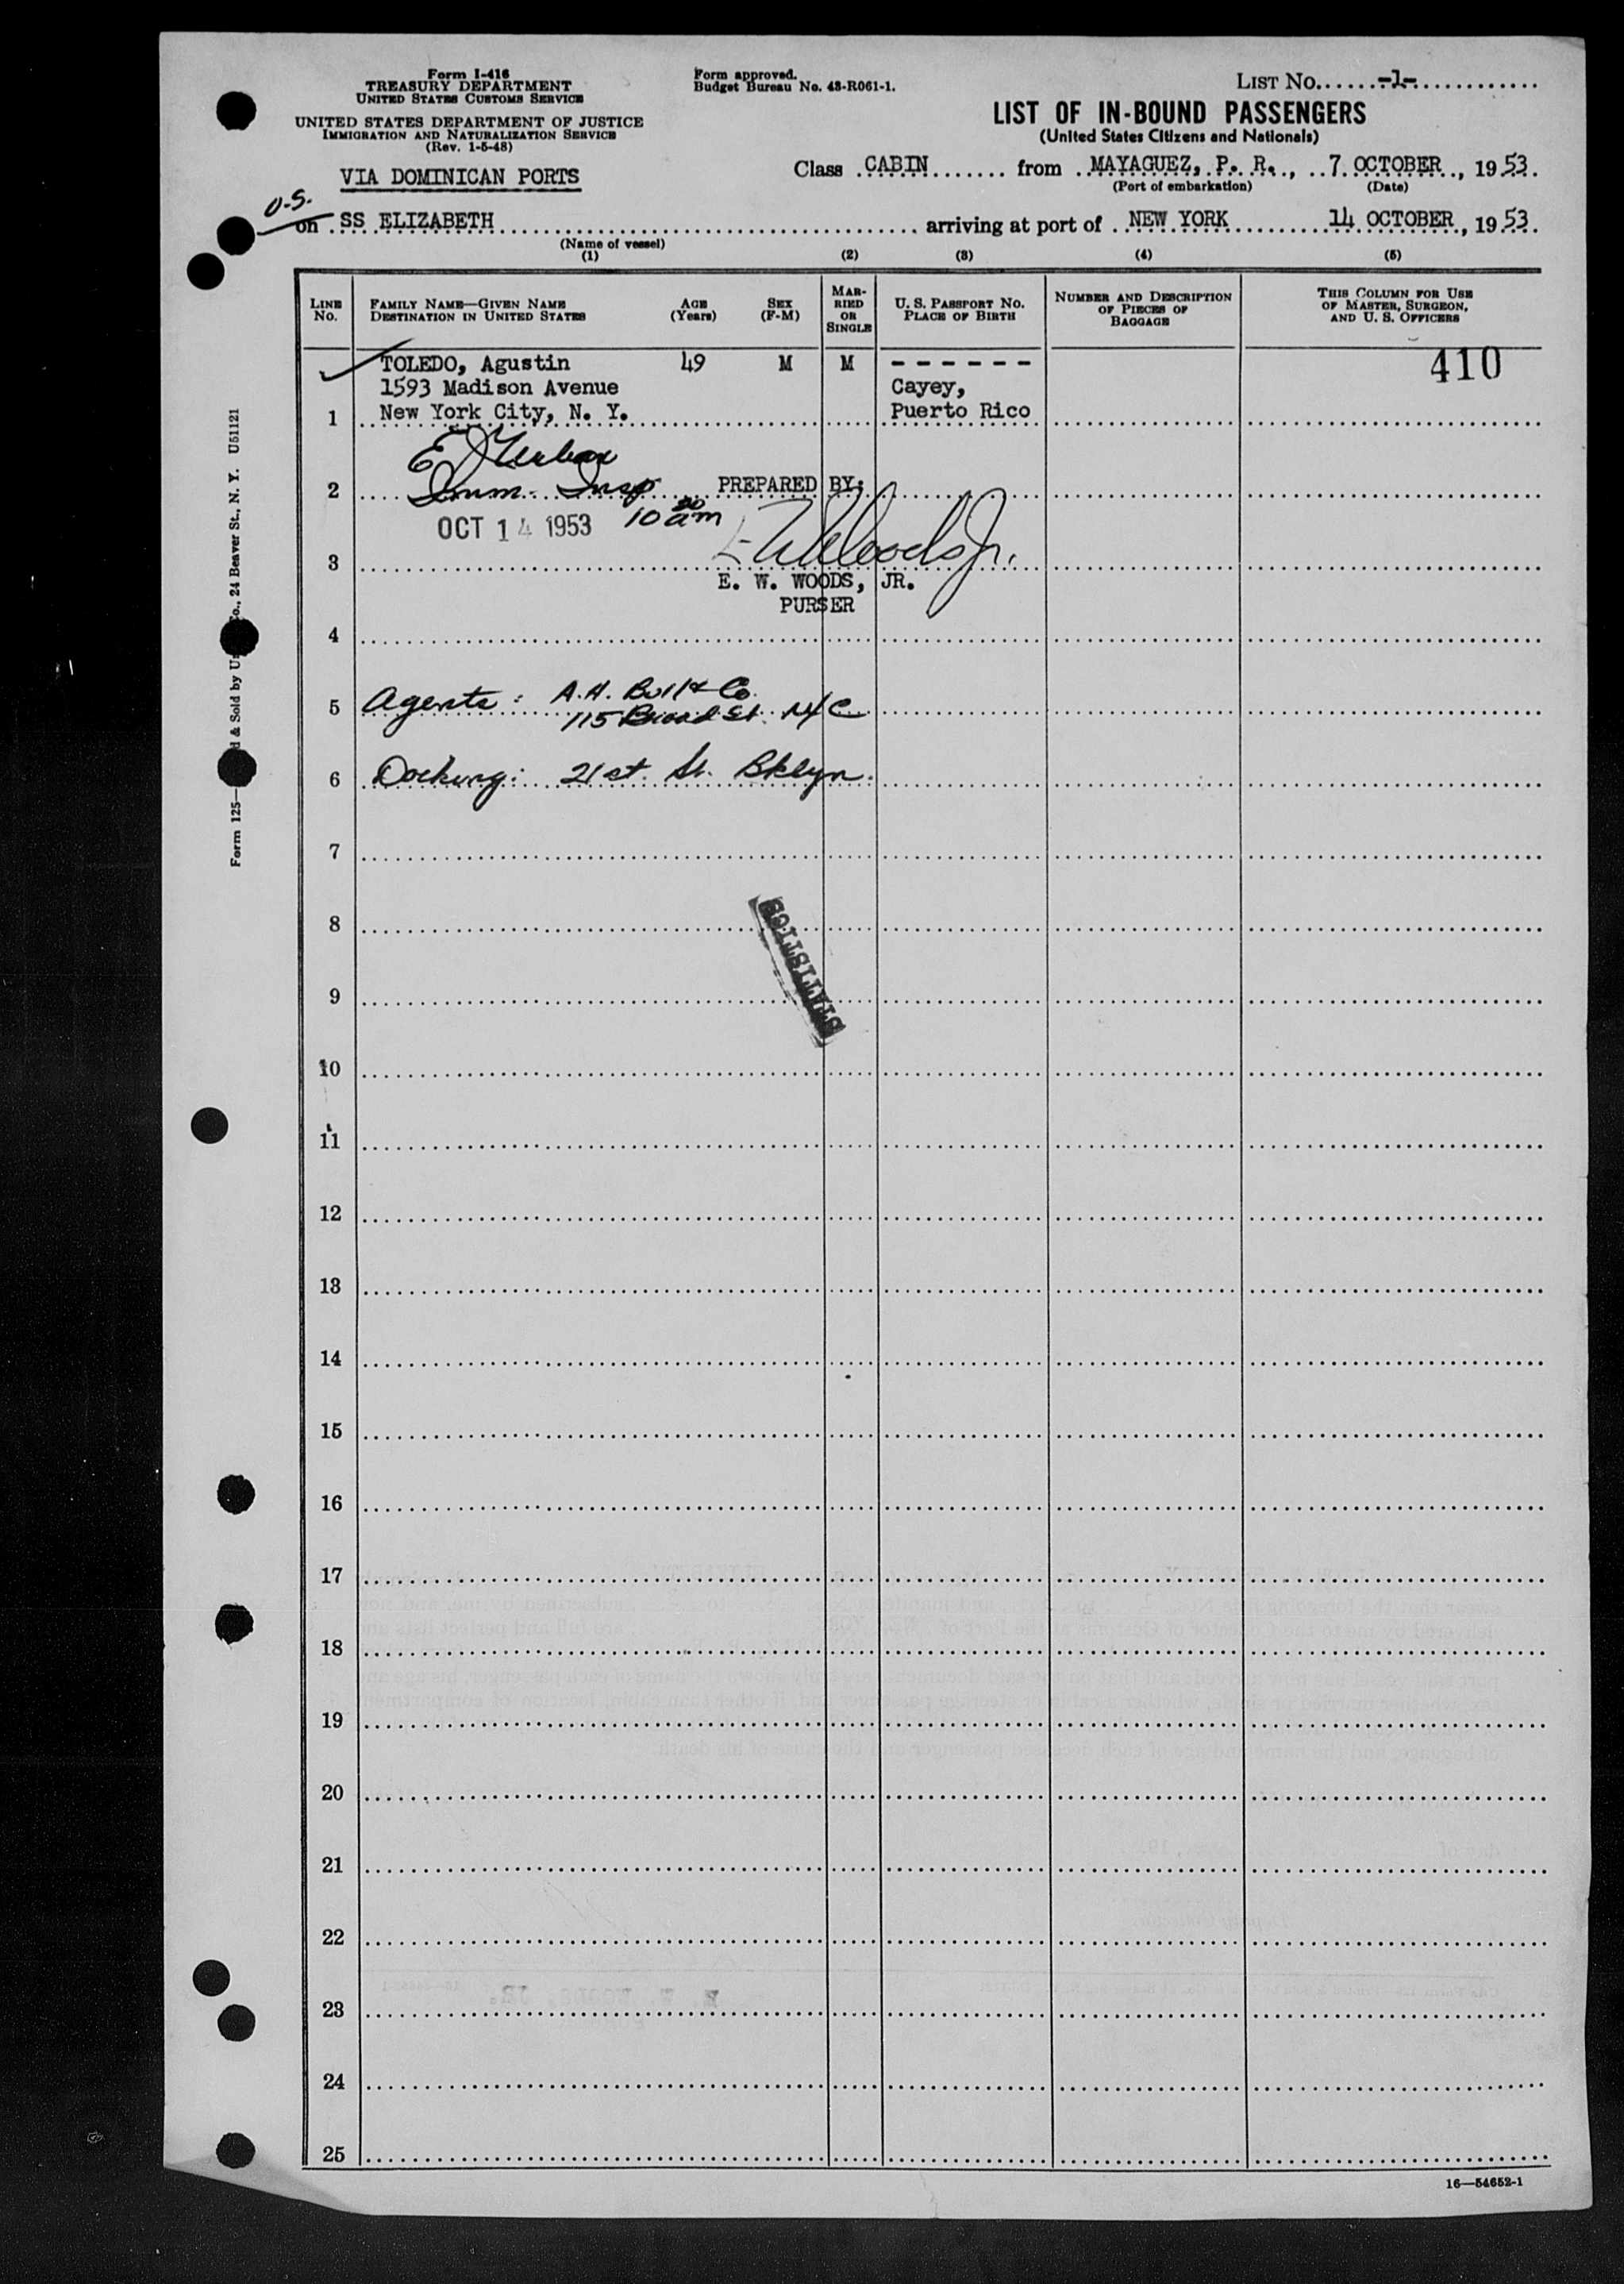 Form I-416
TREASURY DEPARTMENT
UNITED STATES CUSTOMS SERVICE
UNITED STATES DEPARTMENT OF JUSTICE
IMMIGRATION AND NATURALIZATION SERVICE
(Rev. 1-5-48)
VIA DOMINICAN PORTS
Form approved.
Budget Bureau No. 43-R061-1.
LIST No. -1-
LIST OF IN-BOUND PASSENGERS
(United States Citizens and Nationals)
Class CABIN from MAYAGUEZ, P. R., 7 OCTOBER, 1953.
(Port of embarkation) (Date)
U.S.
on SS ELIZABETH arriving at port of NEW YORK 14 OCTOBER, 1953.
(Name of vessel)
(1) (2) (3) (4) (5)
LINE No.
FAMILY NAME—GIVEN NAME
DESTINATION IN UNITED STATES
AGE (Years)
SEX (F-M)
MARRIED OR SINGLE
U. S. PASSPORT No.
PLACE OF BIRTH
NUMBER AND DESCRIPTION OF PIECES OF BAGGAGE
THIS COLUMN FOR USE OF MASTER, SURGEON, AND U. S. OFFICERS
TOLEDO, Agustin 49 M M - - - - - - 410
1593 Madison Avenue Cayey,
1 New York City, N. Y. Puerto Rico
2 Imm. Insp PREPARED BY:
OCT 14 1953 10 20 am
3 E W Woods Jr.
E. W. WOODS, JR.
PURSER
4
5 Agents: A.H. Bull & Co.
115 Broad St. NYC
6 Docking: 21st. St. Bklyn.
7
8
STATISTICS
9
10
11
12
13
14
15
16
17
18
19
20
21
22
23
24
25
16—54652-1
Form 125— & Sold by Co., 24 Beaver St., N. Y. U51121